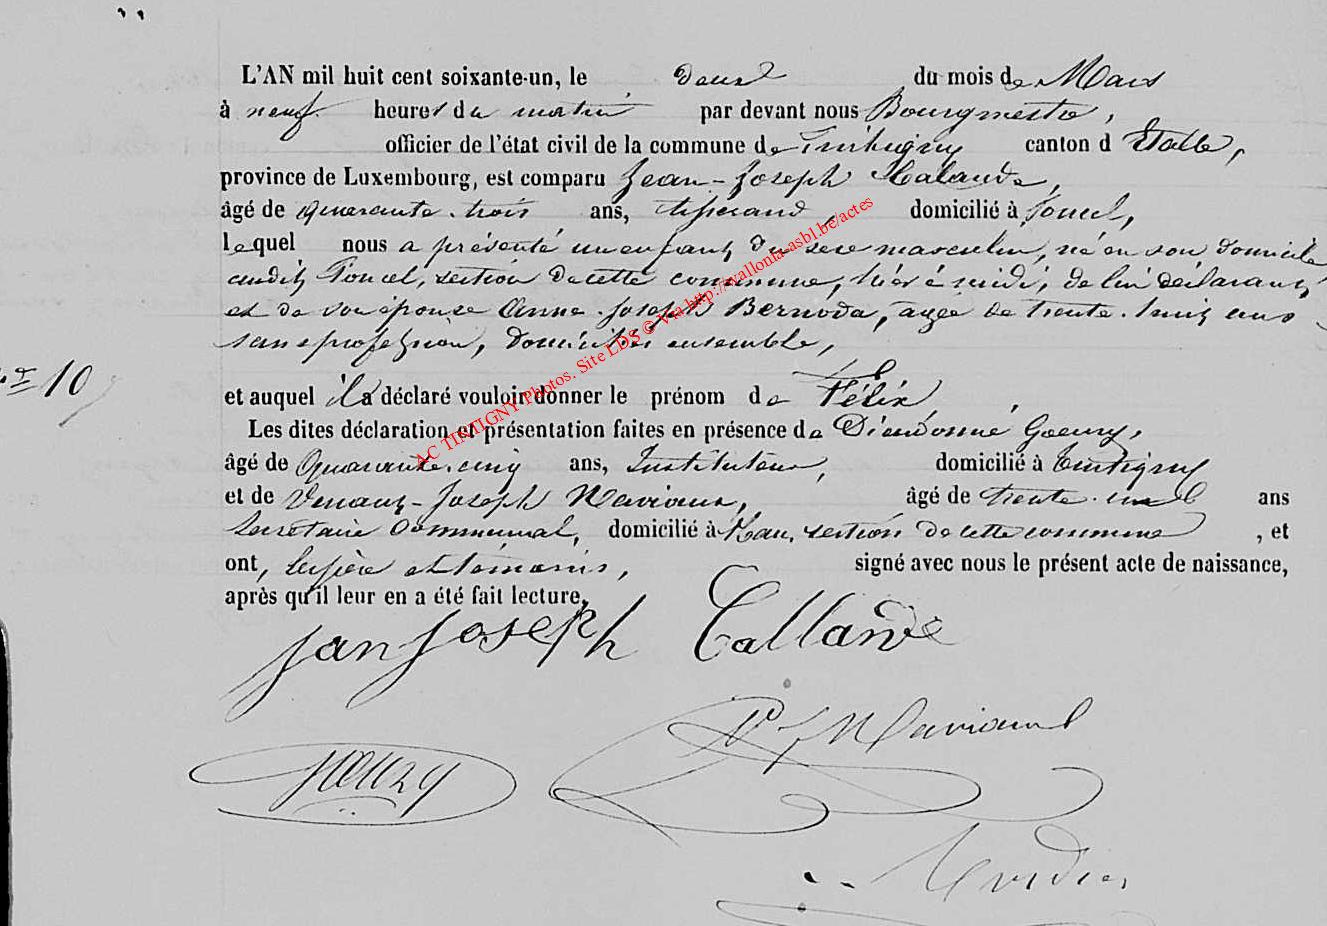 L'AN mil huit cent soixante-un, le deux du mois de Mars
à neuf heures du matin par devant nous Bourgmestre,
officier de l'état civil de la commune de Tintigny canton d'Etalle,
province de Luxembourg, est comparu Jean-Joseph
âgé de quarante-trois ans, tisserand, domicilié à Poncel,
lequel nous a présenté un enfant du sexe masculin, né en son domicile
audit Poncel, section de cette commune, hier à midi, de lui déclarant
et de son épouse Anne-Joseph Bernoda, agée de trente-huit ans
sans profession, domiciliés ensemble,
N° 10
et auquel il a déclaré vouloir donner le prénom de Félix
Les dites déclaration et présentation faites en présence de Dieudonné Goeury,
âgé de Quarante-cinq ans, Instituteur, domicilié à Tintigny
et de Joseph Maviaux, âgé de trente-un ans
Secrétaire Communal, domicilié à Han, section de cette commune, et
ont, le père et témoins, signé avec nous le présent acte de naissance,
après qu'il leur en a été fait lecture.
jan joseph Callande
Goeury
Maviaux
AC TINTIGNY Photos. Site LDS © Via http://wallonia-asbl.be/actes